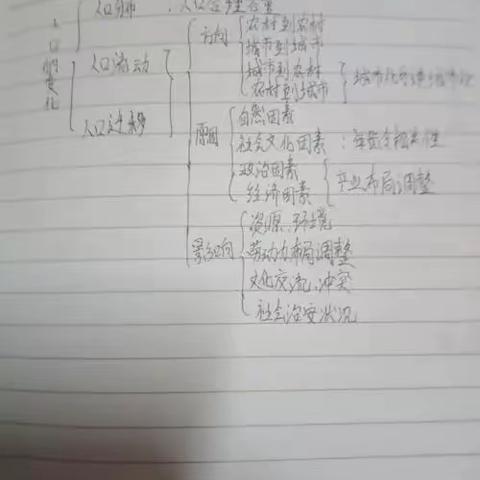 人口分布：人口合理容量
人口的变化
人口流动
人口迁移
方向
农村到农村
城市到城市
城市到农村
农村到城市
原因
自然因素
社会文化因素
政治因素
经济因素
产业布局调整
影响
资源、环境
劳动力布局调整
文化交流、冲突
社会治安状况